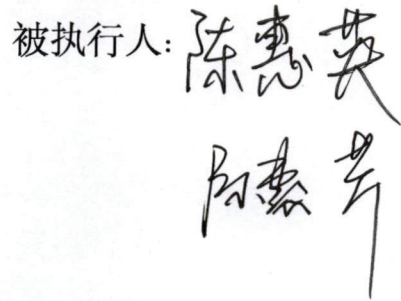 被执行人：陈惠英
陈惠芳